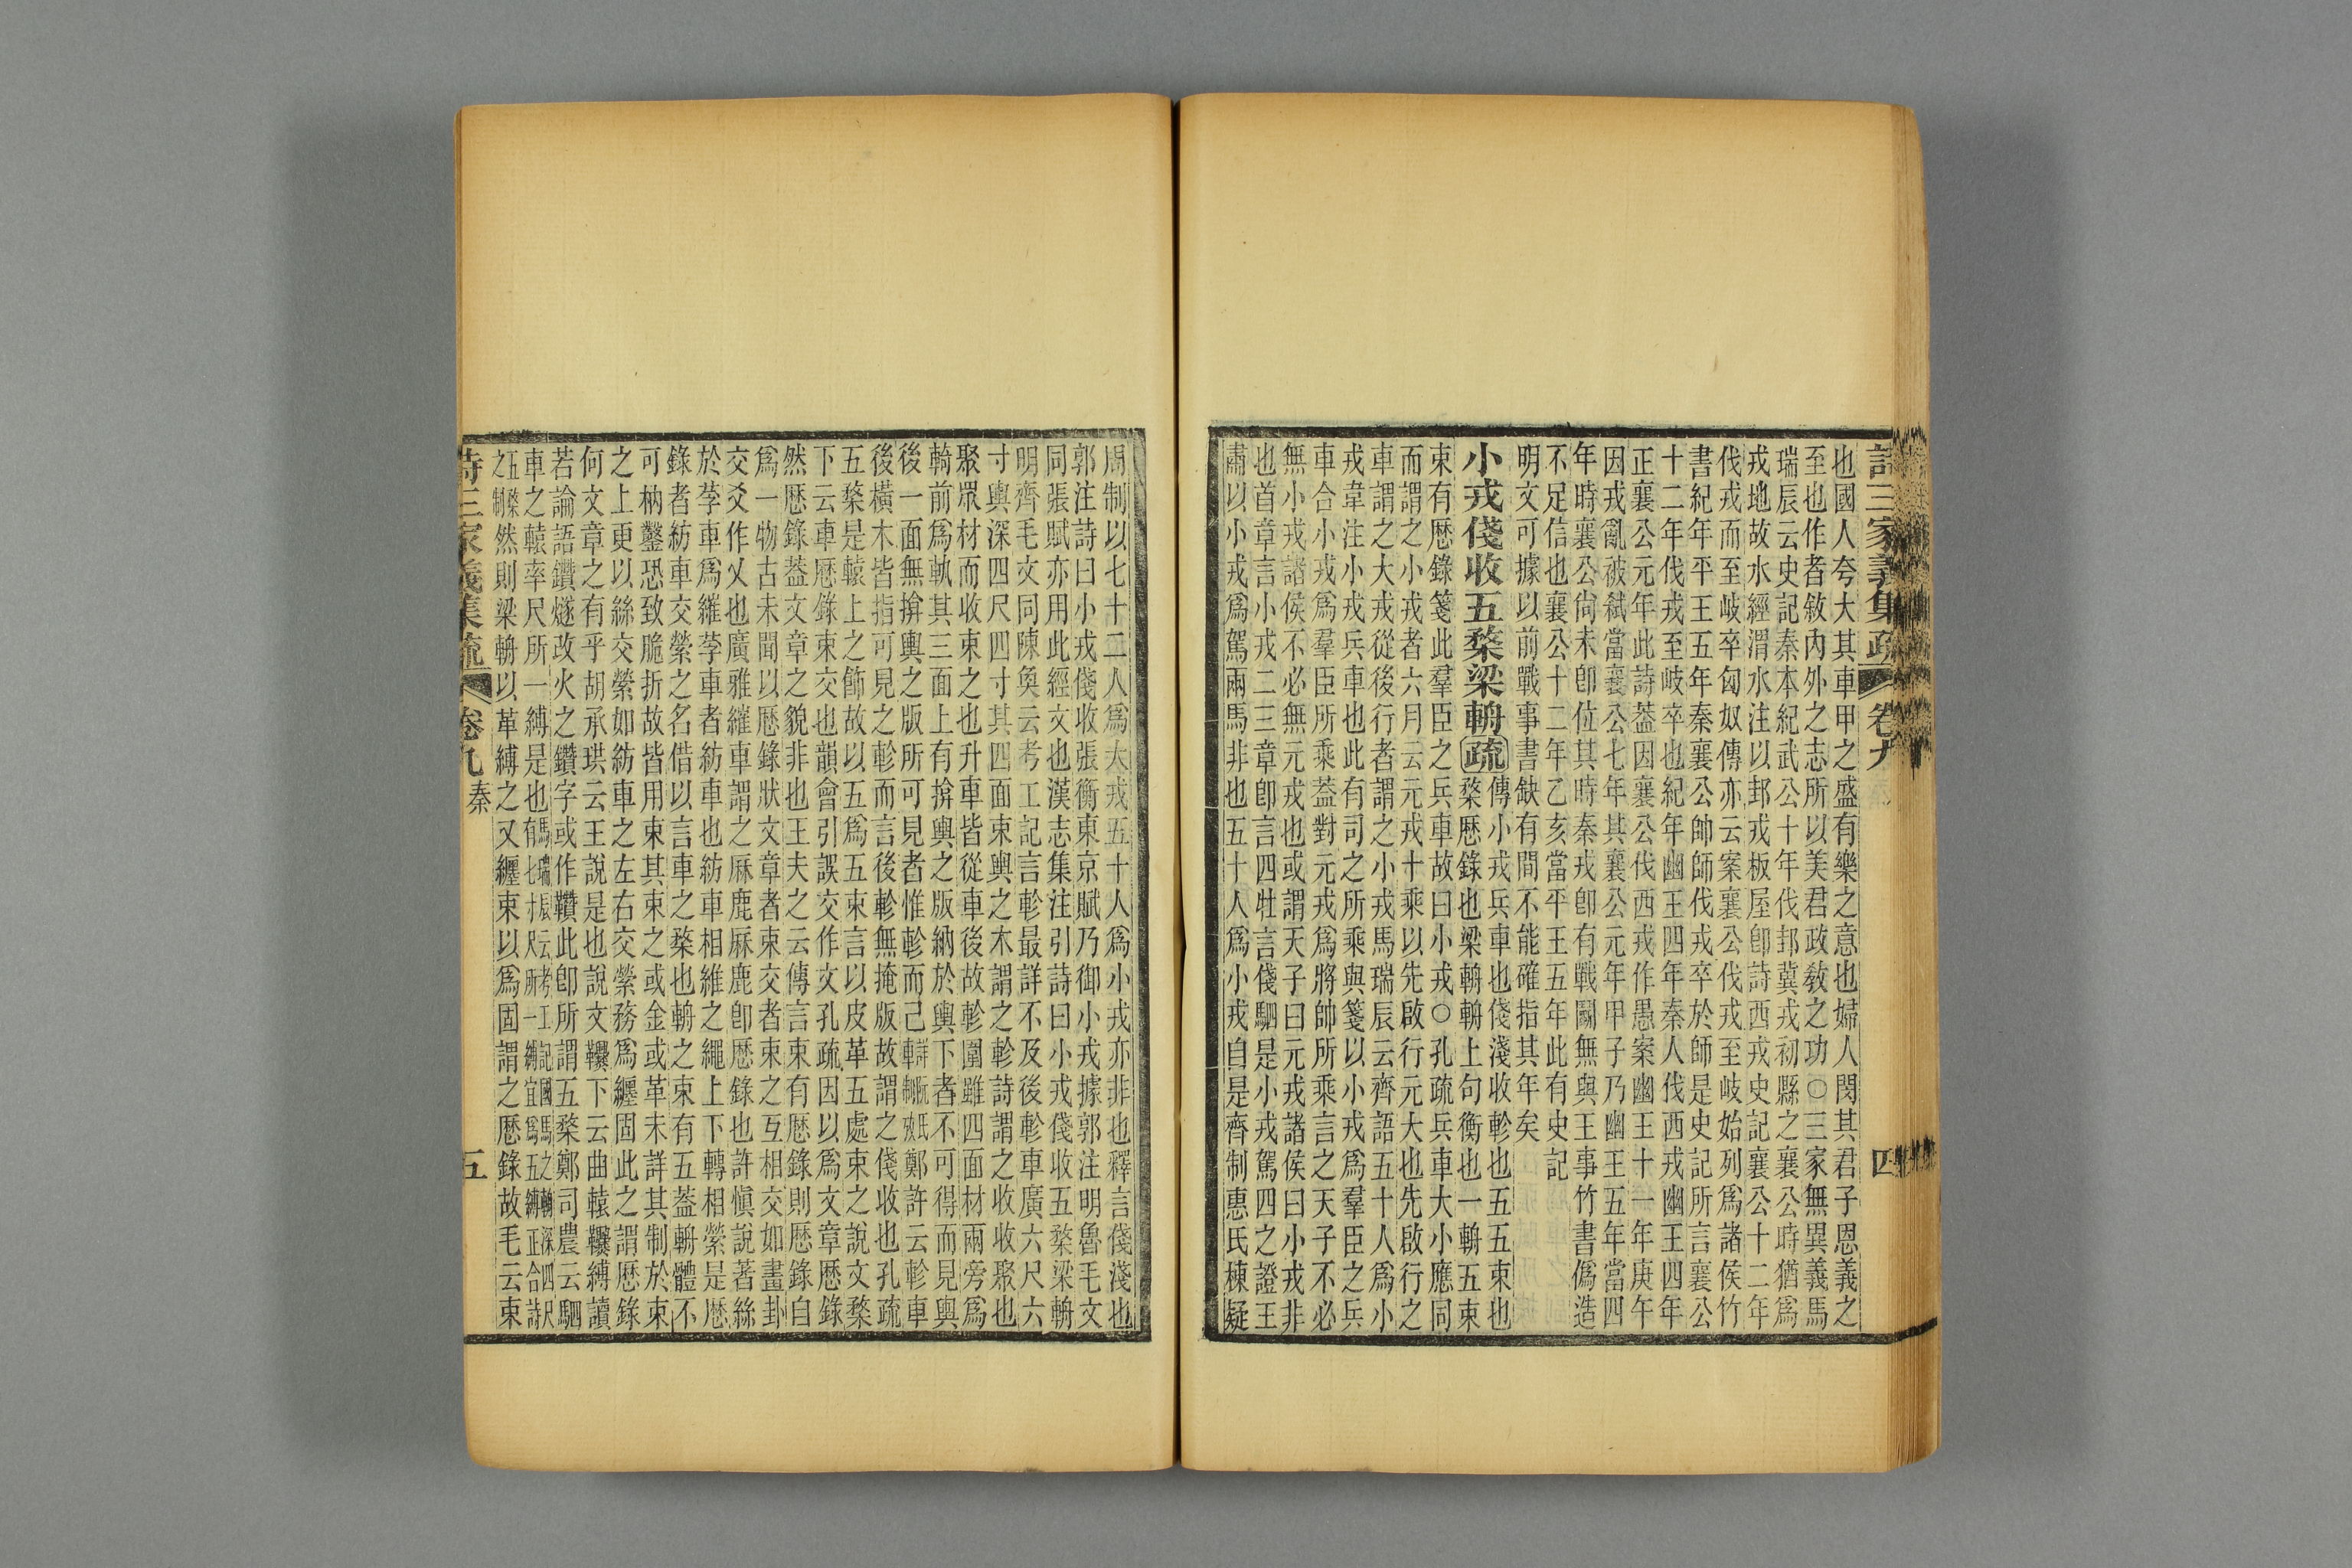 詩三家義集疏 卷九 四
也國人夸大其車甲之盛有樂之意也婦人閔其君子恩義之
至也作者敘內外之志所以美君政敎之功○三家無異義馬
瑞辰云史記秦本紀武公十年伐邽冀戎初縣之襄公時猶爲
戎地故水經渭水注以邽戎板屋卽詩西戎史記襄公十二年
伐戎而至岐卒匈奴傳亦云案襄公伐戎至岐始列爲諸侯竹
書紀年平王五年秦襄公帥師伐戎卒於師是史記所言襄公
十二年伐戎至岐卒也紀年幽王四年秦人伐西戎幽王四年
正襄公元年此詩葢因襄公伐西戎作愚案幽王十一年庚午
因戎亂被弒當襄公七年其襄公元年甲子乃幽王五年當四
年時襄公尙未卽位其時秦戎卽有戰鬭無與王事竹書僞造
不足信也襄公十二年乙亥當平王五年此有史記
明文可據以前戰事書缺有間不能確指其年矣
小戎俴收五楘梁輈疏傳小戎兵車也俴淺收軫也五五束也
楘歷錄也梁輈輈上句衡也一輈五束
束有歷錄箋此羣臣之兵車故曰小戎○孔疏兵車大小應同
而謂之小戎者六月云元戎十乘以先啟行元大也先啟行之
車謂之大戎從後行者謂之小戎馬瑞辰云齊語五十人爲小
戎韋注小戎兵車也此有司之所乘與箋以小戎爲羣臣之兵
車合小戎爲羣臣所乘葢對元戎爲將帥所乘言之天子不必
無小戎諸侯不必無元戎也或謂天子曰元戎諸侯曰小戎非
也首章言小戎二三章卽言四牡言俴駟是小戎駕四之證王
肅以小戎爲駕兩馬非也五十人爲小戎自是齊制惠氏棟疑
周制以七十二人爲大戎五十人爲小戎亦非也釋言俴淺也
郭注詩曰小戎俴收張衡東京賦乃御小戎據郭注明魯毛文
同張賦亦用此經文也漢志集注引詩曰小戎俴收五楘梁輈
明齊毛文同陳奐云考工記言軫最詳不及後軫車廣六尺六
寸輿深四尺四寸其四面束輿之木謂之軫詩謂之收收聚也
聚眾材而收束之也升車皆從車後故軫圍雖四面材兩旁爲
輢前爲軓其三面上有揜輿之版納於輿下者不可得而見輿
後一面無揜輿之版所可見者惟軫而已詳阮氏車制攷鄭許云軫車
後橫木皆指可見之軫而言後軫無掩版故謂之俴收也孔疏
五楘是轅上之飾故以五爲五束言以皮革五處束之說文楘
下云車歷錄束交也韻會引誤交作文孔疏因以爲文章歷錄
然歷錄葢文章之貌非也王夫之云傳言束有歷錄則歷錄自
爲一物古未聞以歷錄狀文章者束交者束之互相交如畫卦
交爻作乂也廣雅維車謂之麻鹿麻鹿卽歷錄也許愼說著絲
於莩車爲維莩車者紡車也紡車相維之繩上下轉相縈是歷
錄者紡車交縈之名借以言車之楘也輈之束有五葢輈體不
可枘鑿恐致脆折故皆用束其束之或金或革未詳其制於束
之上更以絲交縈如紡車之左右交縈務爲纏固此之謂歷錄
何文章之有乎胡承珙云王說是也說文䡺下云曲轅䡺縛讀
若論語鑽燧改火之鑽字或作䪜此卽所謂五楘鄭司農云駟
車之轅率尺所一縛是也馬瑞辰云考工記國馬之輈深四尺有七寸尺所一縛宜爲五縛正合詩
五楘之制然則梁輈以革縛之又纏束以爲固謂之歷錄故毛云束
詩三家義集疏 卷九 秦 五